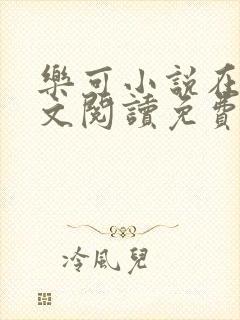 樂可小說在
文閱讀免費
冷風兒